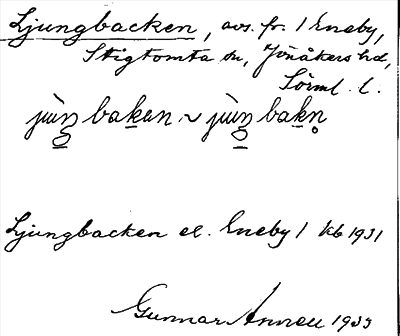 Ljungbacken, avs. fr. 1 Eneby,
Stigtomta sn, Jönåkers hd,
Sörml. l.
jùŋ bakan ~ jùŋ bakn̥
Ljungbacken el. Eneby 1 kb 1931
Gunnar Annell 1933